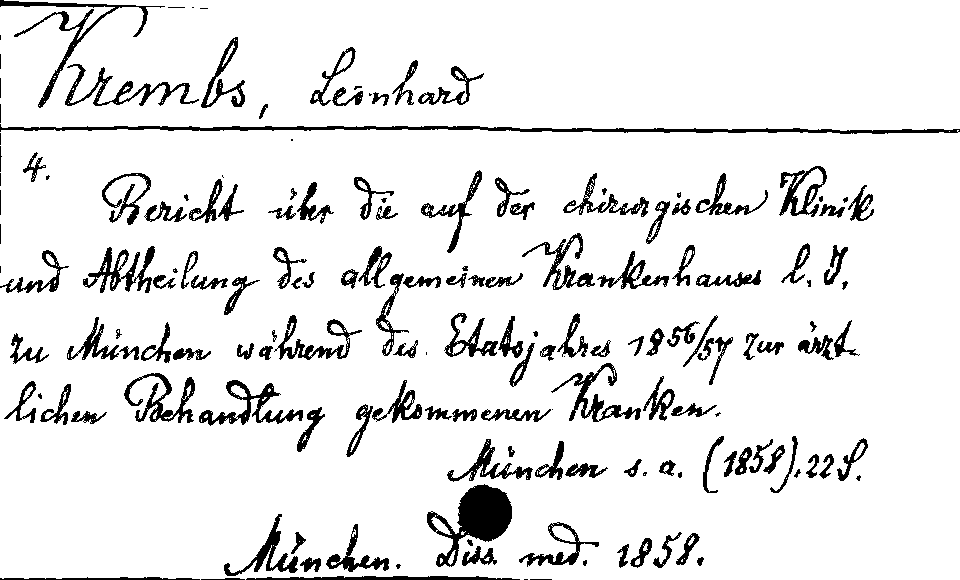 Krembs, Leinhard
4.
Bericht über die auf der chirurgischen Klinik
und Abtheilung des allgemeinen Krankenhauses l. I.
zu München während des Etatsjahres 1856/57 zur ärzt-
lichen Behandlung gekommenen Kranken.
München s. a. (1858). 22 S.
München. Diss. med. 1858.